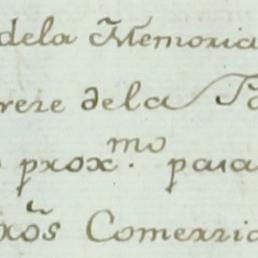 dela Memoria
rere dela
prox.mo para
xõs Comerri